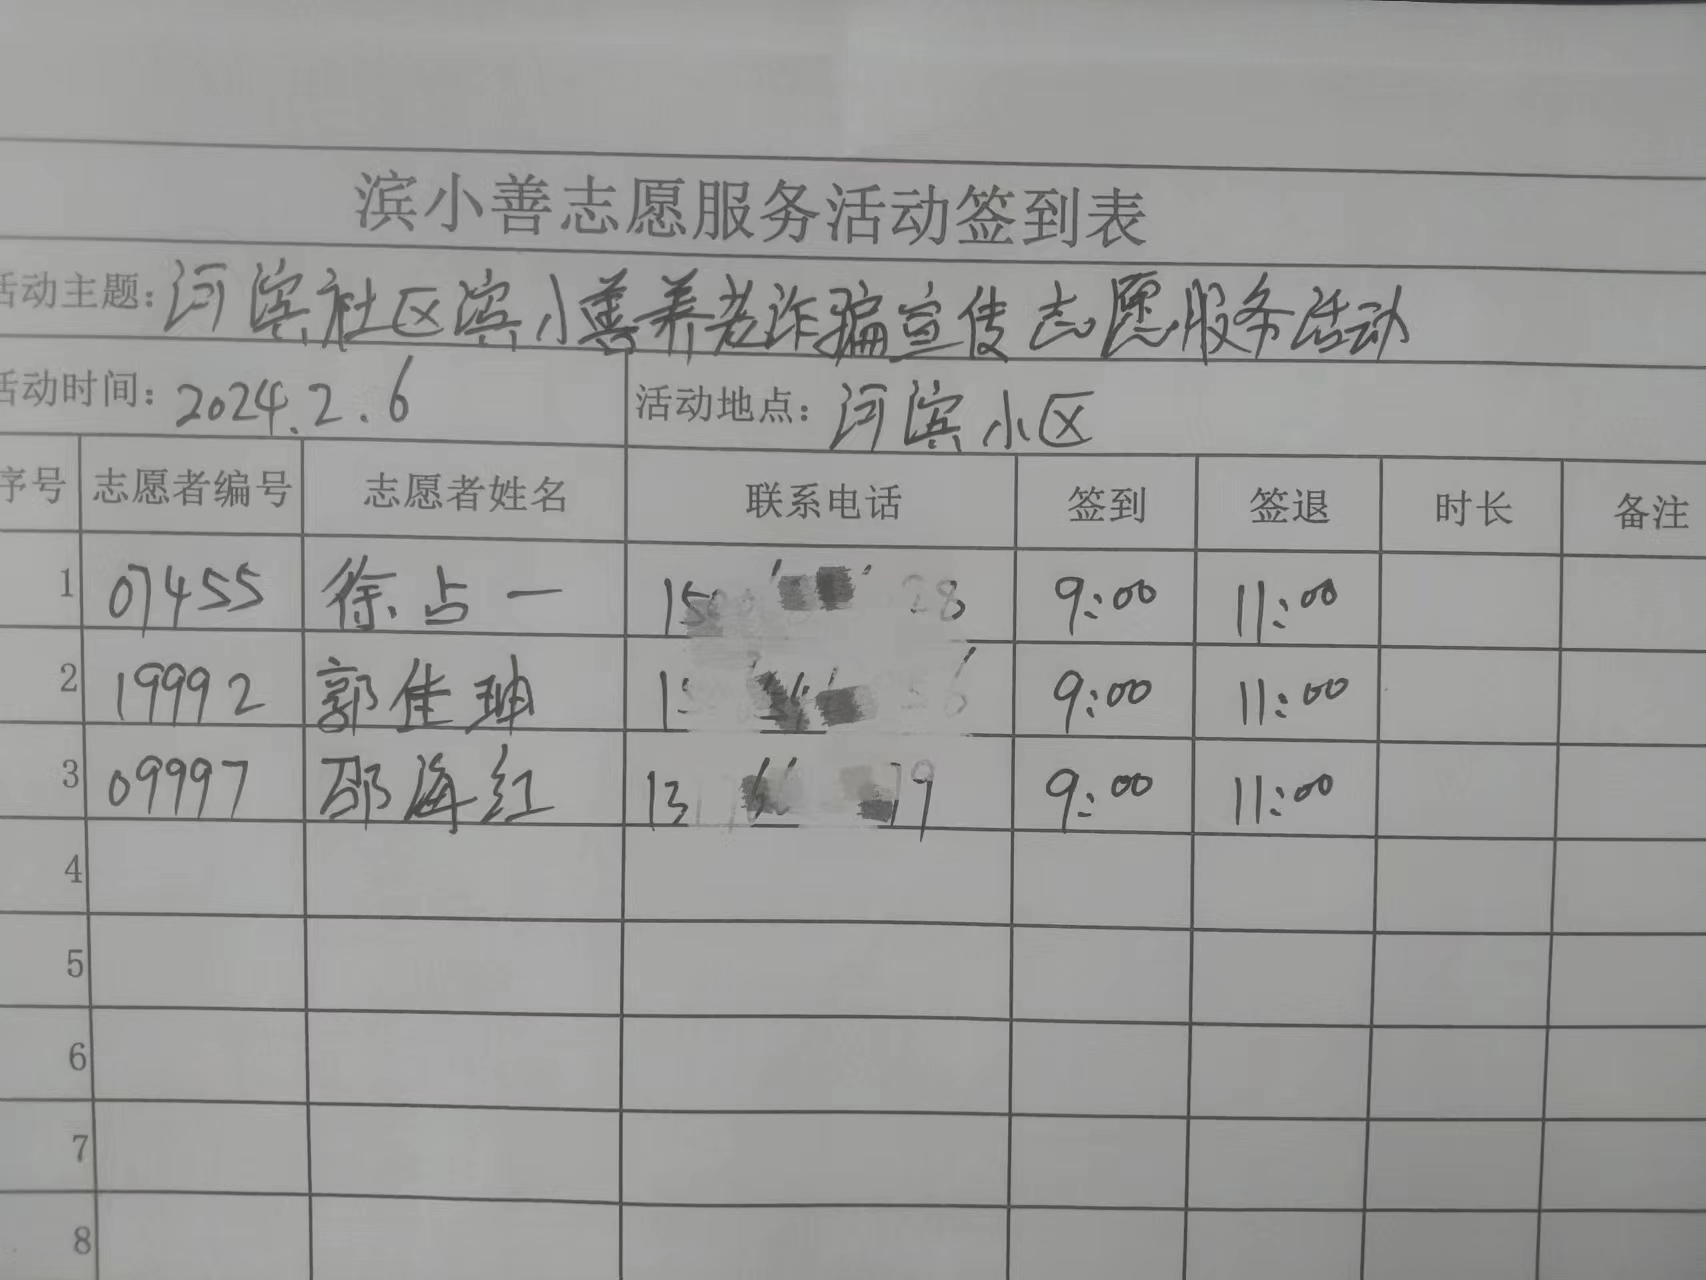 滨小善志愿服务活动签到表
活动主题：河滨社区滨小善养老诈骗宣传志愿服务活动
活动时间：2024.2.6 活动地点：河滨小区
序号 志愿者编号 志愿者姓名 联系电话 签到 签退 时长 备注
1 07455 徐占一 15 28 9:00 11:00
2 19992 郭佳珅 1 56 9:00 11:00
3 09997 邵海红 13 79 9:00 11:00
4
5
6
7
8